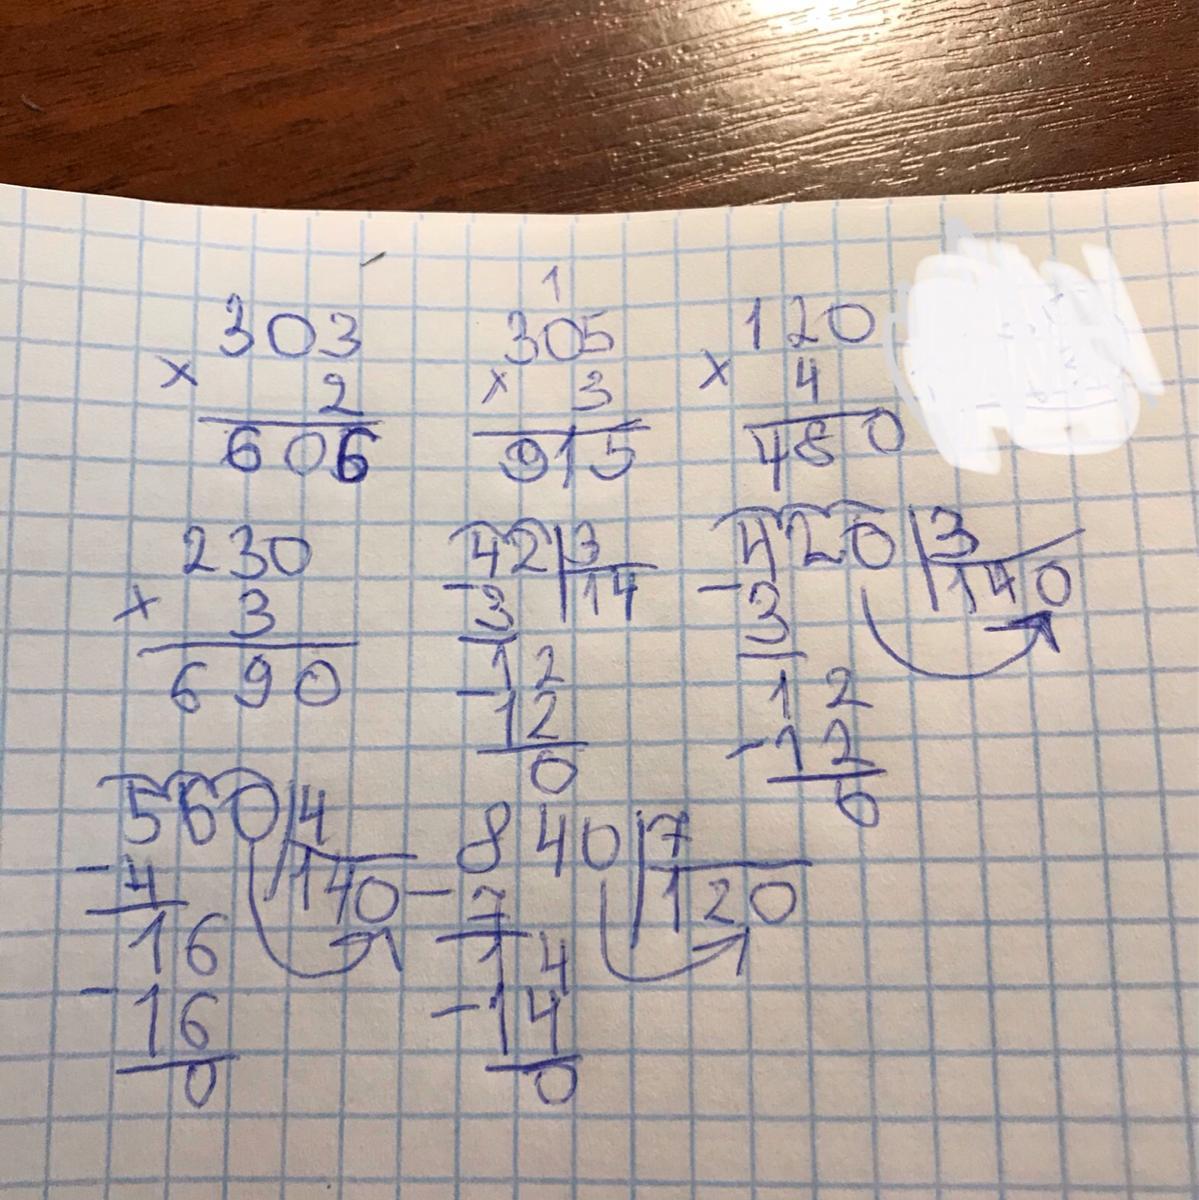 1
303 305 120
× 2 × 3 × 4
606 915 480
230 42 3 420 3
× 3 - 3 14 - 3 140
690 12 12
- 12 - 12
0 0
560 4 840 7
- 4 140 - 7 120
16 14
- 16 - 14
0 0